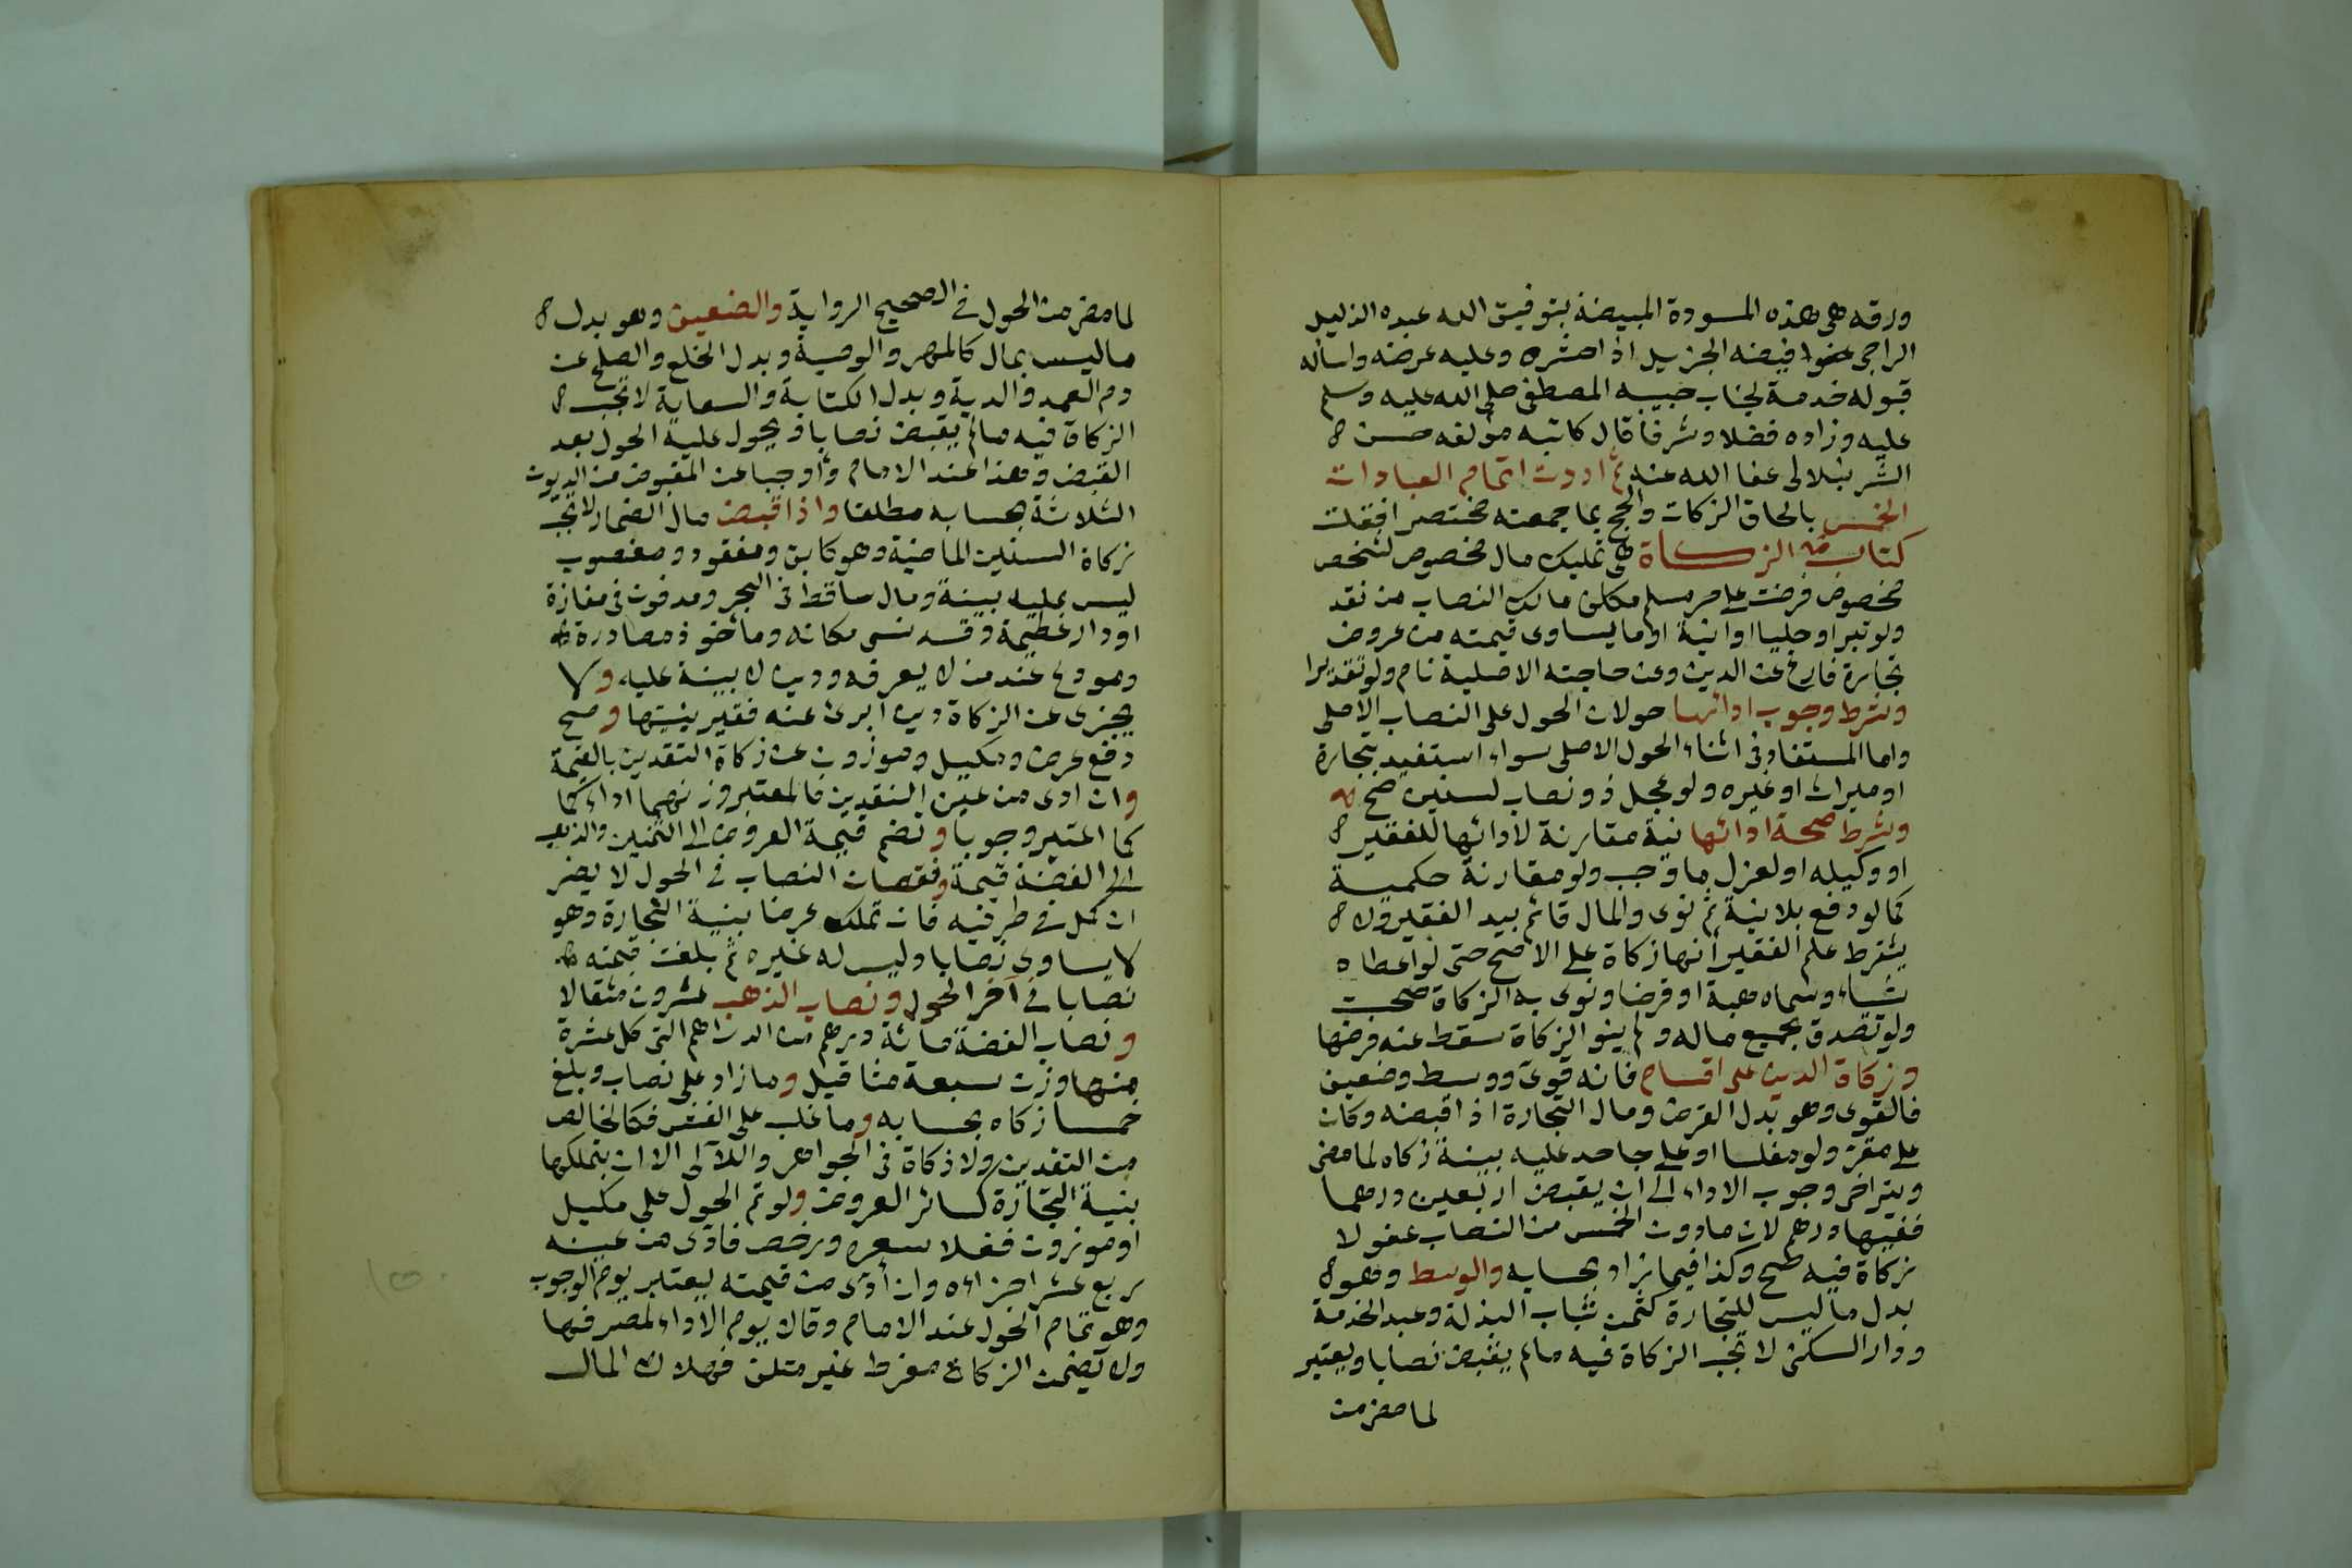 ورقه هى هذه المسودة المبيضة بتوفيق الله عبده الذليل
الراجى فيضه الجزيل اذا حشره وعليه عرضه واسأله
قبوله خدمة لجناب حبيبه المصطفى صلى الله عليه وسلم
عليه وزاده فضلا وشرفا قال كاتبه مؤلفه حسن
الشرنبلالى عفا الله عنه ثم اردت اتمام العبادات
الخمس بالحاق الزكات والحج بما جمعته مختصرا فقلت
كتاب الزكاة هى تمليك مال مخصوص لشخص
مخصوص فرضت على حر مسلم مكلف مالك النصاب من نقد
ولو تبرا او حليا او انية او ما يساوى قيمته من عروض
تجارة فارغ عن الدين وعن حاجته الاصلية نام ولو تقديرا
وشرط وجوب ادائها حولان الحول على النصاب الاصلى
واما المستفاد فى اثناء الحول الاصلى سواء استفيد بتجارة
او ميراث او غيره ولو عجل ذو نصاب لسنين صح
وشرط صحة ادائها نية مقارنة لادائها للفقير
او وكيله او لعزل ما وجب ولو مقارنة حكمية
كما لو دفع بلا نية ثم نوى والمال قائم بيد الفقير ولا
يشترط علم الفقير أنها زكاة على الاصح حتى لو اعطاه
شيأ وسماه هبة او قرضا ونوى به الزكاة صحت
ولو تصدق بجميع ماله ولم ينو الزكاة سقط عنه فرضها
وزكاة الدين على اقسام فانه قوى ووسط وضعيف
فالقوى وهو بدل القرض ومال التجارة اذا قبضه وكان
على مقر ولو مفلسا او على جاحد عليه بينة زكاه لما مضى
ويتراخى وجوب الاداء الى ان يقبض اربعين درهما
ففيها درهم لان ما دون الخمس من النصاب عفو لا
زكاة فيه صح وكذا فيما زاد بحسابه والوسط وهو
بدل ما ليس للتجارة كثمن ثياب البذلة وعبد الخدمة
ودار السكنى لا تجب الزكاة فيه ما لم يقبض نصابا ويعتبر
لما مضى من
لما مضى من الحول فى الصحيح الرواية والضعيف وهو بدل
ما ليس بمال كالمهر والوصية وبدل الخلع والصلح عن
دم العمد والدية وبدل الكتابة والسعاية لا تجب
الزكاة فيه ما لم يقبض نصابا ويحول عليه الحول بعد
القبض وهذا عند الامام واوجبا عن المقبوض من الديون
الثلاثة بحسابه مطلقا واذا قبض مال الضمار لا تجب
زكاة السنين الماضية وهو كابق ومفقود ومغصوب
ليس عليه بينة ومال ساقط فى البحر ومدفون فى مفازة
او دار عظيمة وقد نسى مكانه ومأخوذ مصادرة
ومودع عند من لا يعرفه ودين لا بينة عليه ولا
يجزى عن الزكاة دين ابرئ عنه فقير بنيتها وصح
دفع عرض ومكيل وموزون عن زكاة النقدين بالقيمة
وان ادى من عين النقدين فالمعتبر وزنهما اداء كما
كما اعتبر وجوبا وتضم قيمة العروض الى الثمنين والذهب
الى الفضة قيمة ونقصان النصاب فى الحول لا يضر
ان كمل فى طرفيه فان تملك عرضا بنية التجارة وهو
لا يساوى نصابا وليس له غيره ثم بلغت قيمته
نصابا فى آخر الحول ونصاب الذهب عشرون مثقالا
ونصاب الفضة مائة درهم من الدراهم التى كل عشرة
منها وزن سبعة مثاقيل وما زاد على نصاب وبلغ
خمسا زكاه بحسابه وما غلب على الغش فكالخالص
من النقدين ولا زكاة فى الجواهر واللآلى الا ان يتملكها
بنية التجارة كسائر العروض ولو تم الحول على مكيل
او موزون فغلا سعره ورخص فأدى من عينه
ربع عشر اجزاءه وان أدى من قيمته يعتبر يوم الوجوب
وهو تمام الحول عند الامام وقالا يوم الاداء لمصرفها
ولا يضمن الزكاة مفرط غير متلف فهلاك المال